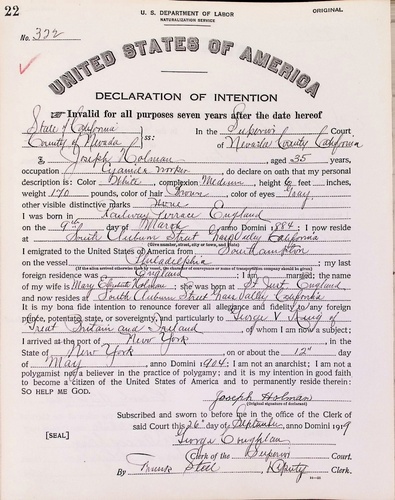 22
U. S. DEPARTMENT OF LABOR
NATURALIZATION SERVICE
ORIGINAL.
No. 322
UNITED STATES OF AMERICA
DECLARATION OF INTENTION
Invalid for all purposes seven years after the date hereof
State of California
In the Superior Court
County of Nevada ss: of Nevada County California
I, Joseph Holman aged 35 years,
occupation Cyanide worker, do declare on oath that my personal
description is: Color White, complexion Medium, height 6 feet inches,
weight 140 pounds, color of hair Brown, color of eyes Gray
other visible distinctive marks None
I was born in Railway Terrace England
on the 9th day of March, anno Domini 1884; I now reside
at South Auburn Street Grass Valley California
(Give number, street, city or town, and State)
I emigrated to the United States of America from Southampton
on the vessel Philadelphia; my last
(If the alien arrived otherwise than by vessel, the character of conveyance or name of transportation company should be given)
foreign residence was England; I am married; the name
of my wife is Mary Elizabeth Holman; she was born at St Just England
and now resides at South Auburn Street Grass Valley California
It is my bona fide intention to renounce forever all allegiance and fidelity to any foreign
prince, potentate, state, or sovereignty, and particularly to George V King of
Great Britain and Ireland, of whom I am now a subject;
I arrived at the port of New York, in the
State of New York, on or about the 12th day
of May, anno Domini 1904; I am not an anarchist; I am not a
polygamist nor a believer in the practice of polygamy; and it is my intention in good faith
to become a citizen of the United States of America and to permanently reside therein:
SO HELP ME GOD.
Joseph Holman
(Original signature of declarant)
Subscribed and sworn to before me in the office of the Clerk of
[SEAL] said Court this 26th day of September, anno Domini 1919
George Coughlan
Clerk of the Superior Court.
By Steel Deputy Clerk.